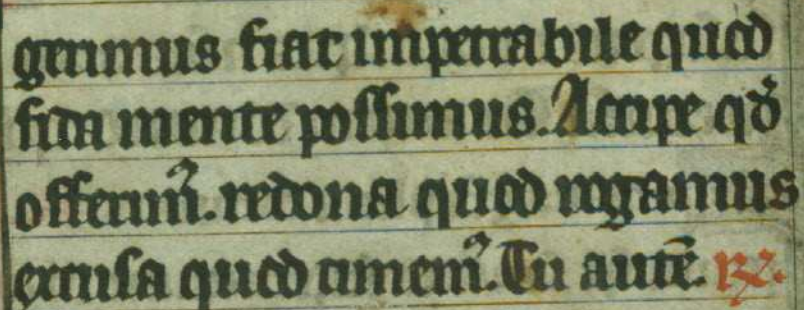 gerimus fiat impetrabile quod
fida mente possimus. Accipe qđ
offerim᷒. redona quod rogamus
excusa quod timem᷒. Tu autē. ℟.